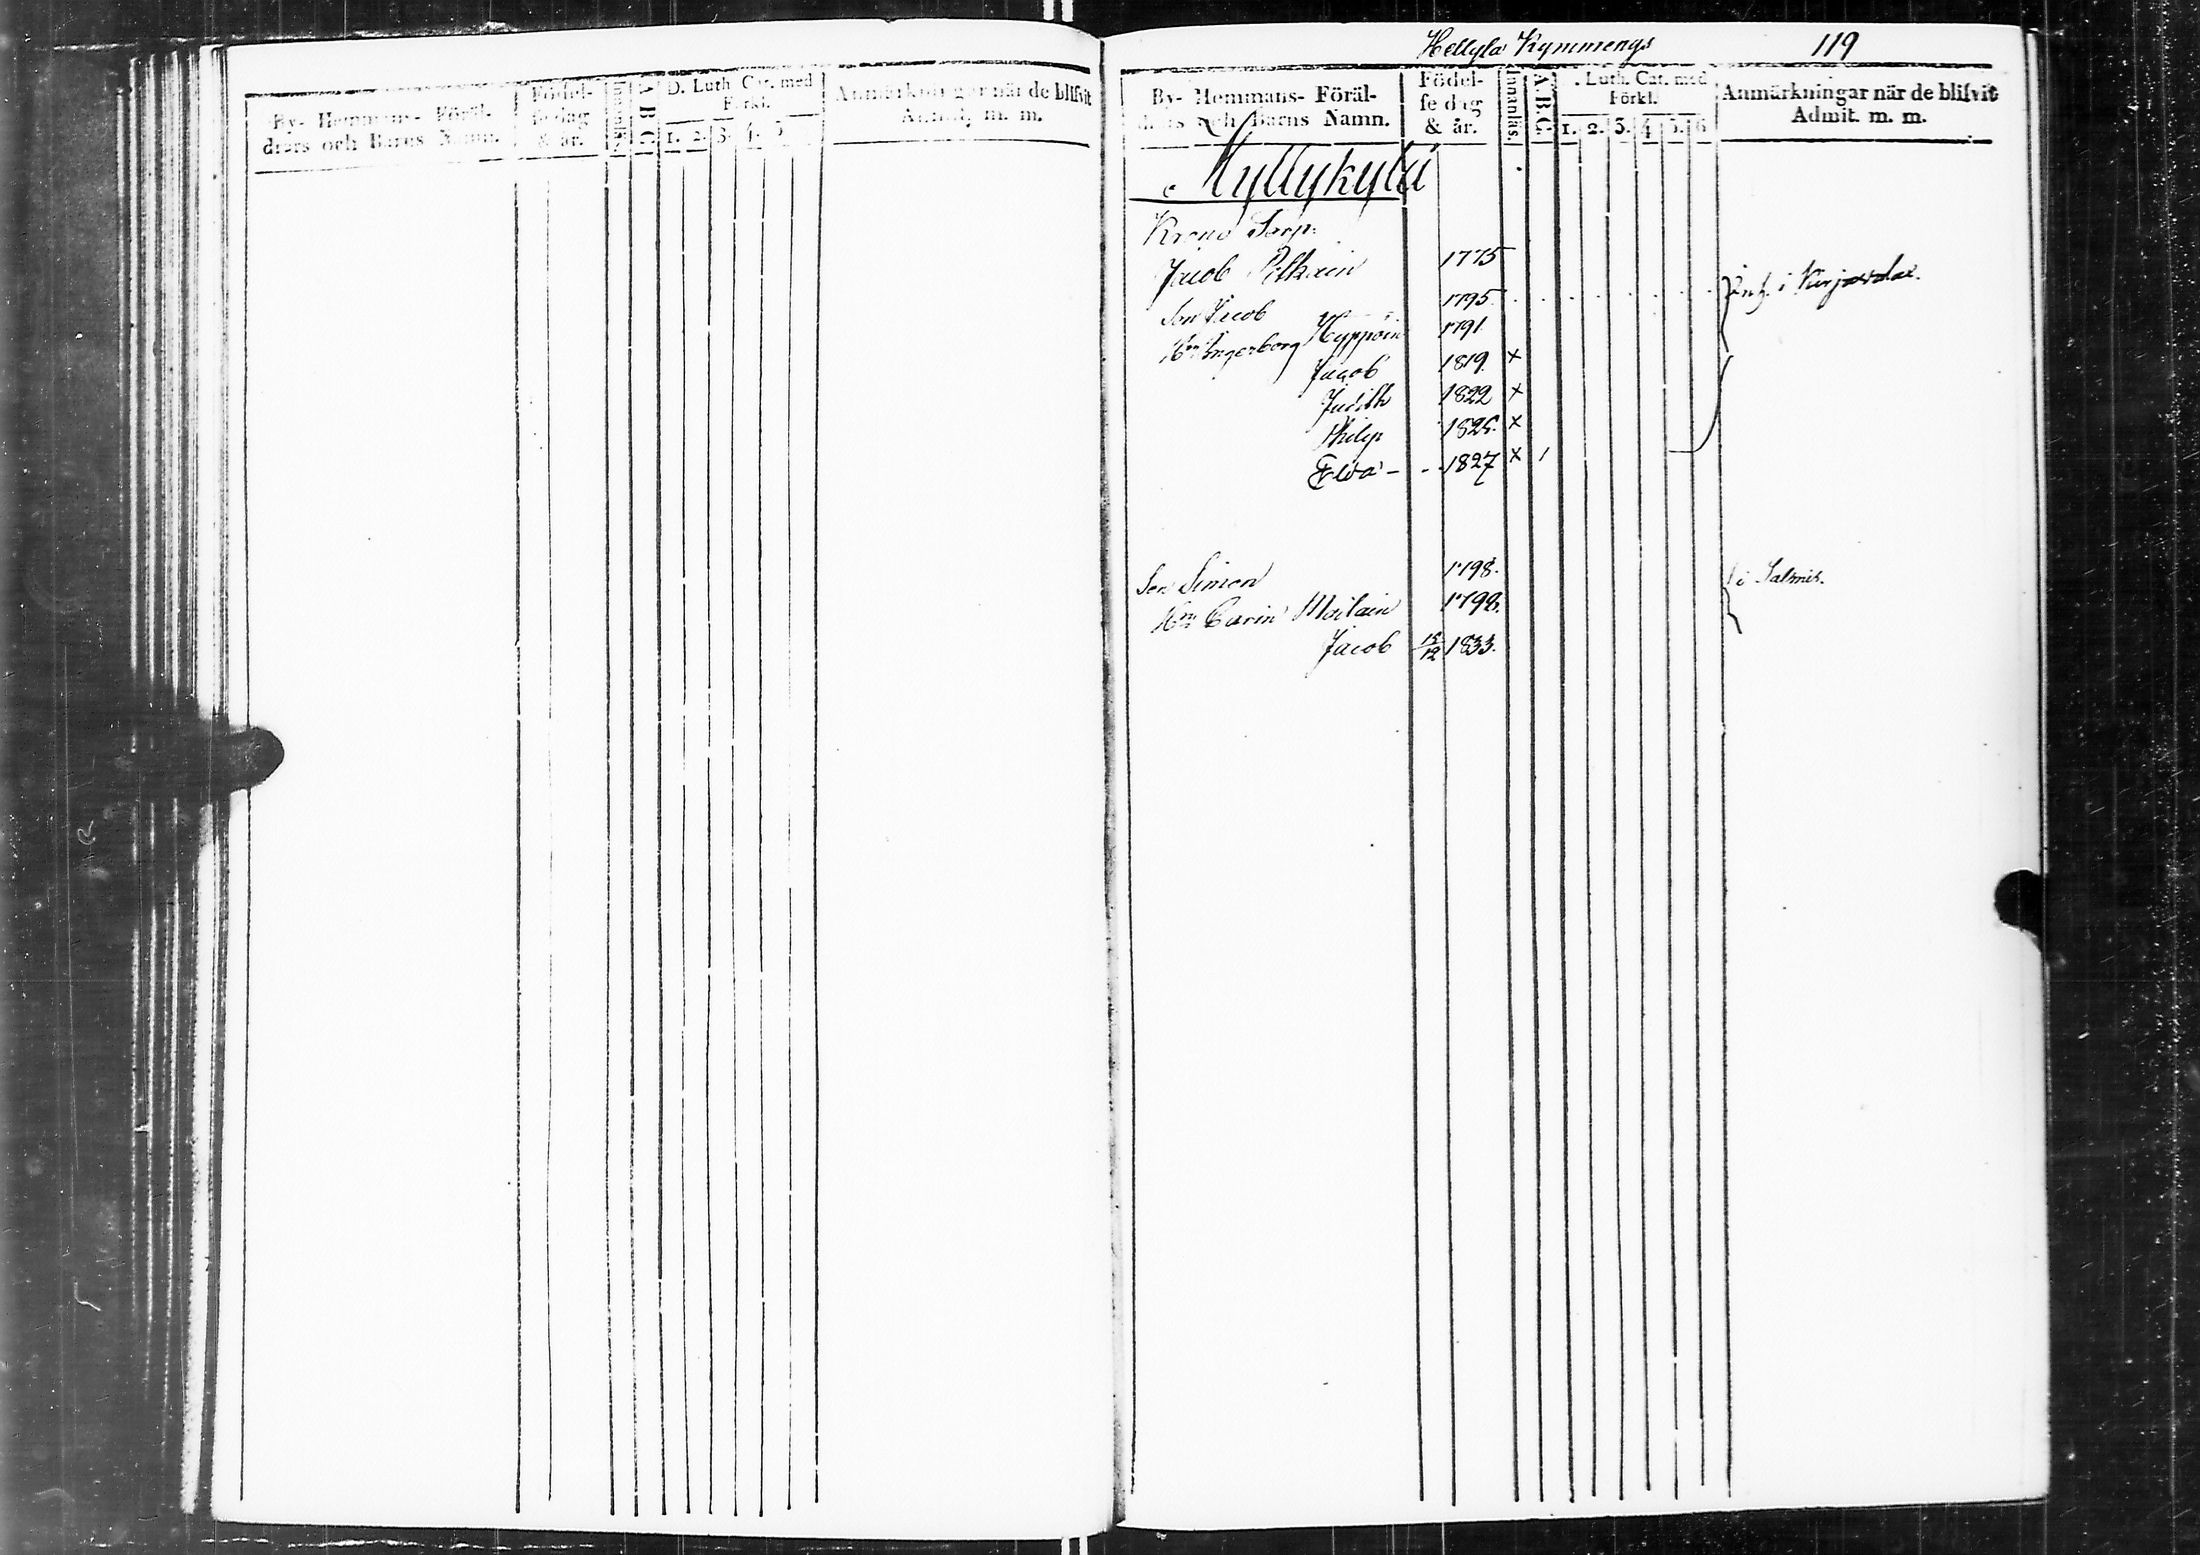 By- Hemmans- Föräl-
drars och Barns Namn.
Födel-
se dag
& år.
Innanläs.
A. B. C.
D. Luth. Cat. med
Förkl.
1. 2. 3. 4. 5.
Anmärkningar när de blifvit
Admit. m. m.
Hellylä Kymmengs 119
By- Hemmans- Föräl-
drars och Barns Namn.
Födel-
se dag
& år.
Innanläs.
A. B. C.
. Luth. Cat. med
Förkl.
1. 2. 3. 4. 5. 6
Anmärkningar när de blifvit
Admit. m. m.
Myllykylä
Krono Torp.
Jacob 1775
Son Jacob 1795. i
Hu Ingerborg Hyppöin 1791
Jacob 1819. x
Judith 1822 x
Philip 1825. x
Ewa - - 1827 x /
Son Simon 1798. i Salmis.
Hu Carin Moilain 1798.
Jacob 15/12 1833.